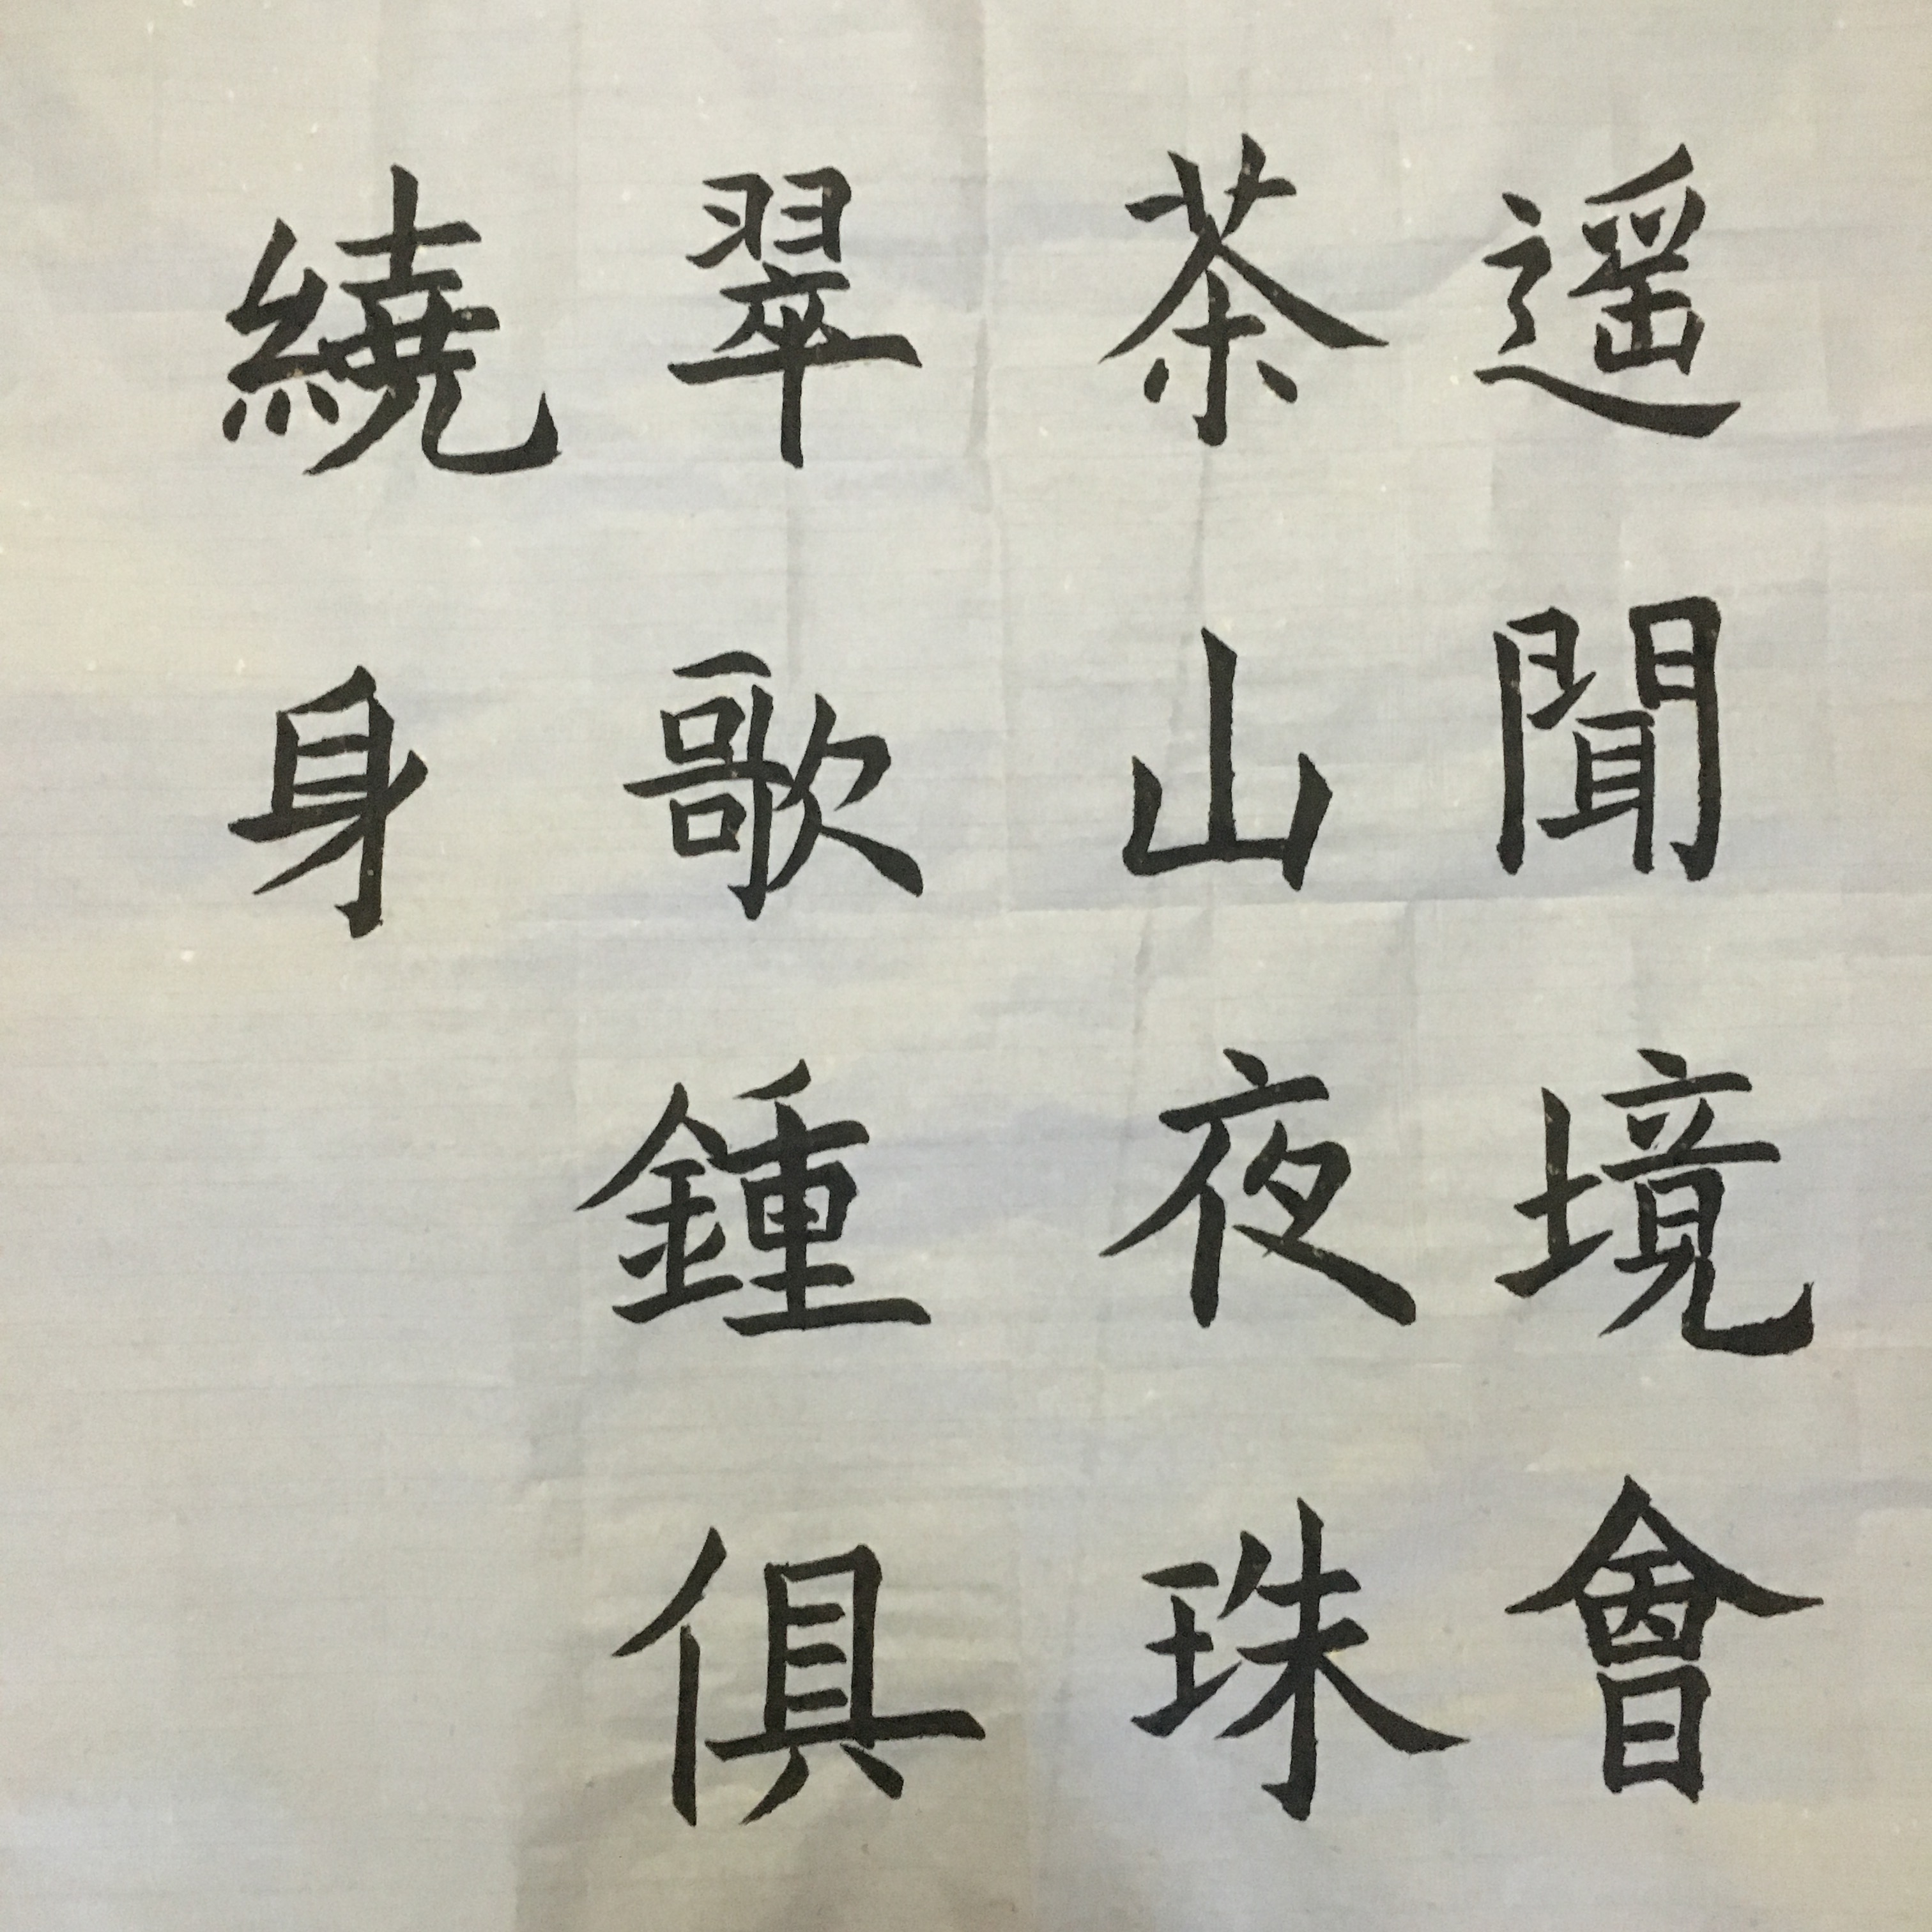 遥聞境會
茶山夜珠
翠歌鍾俱
繞身